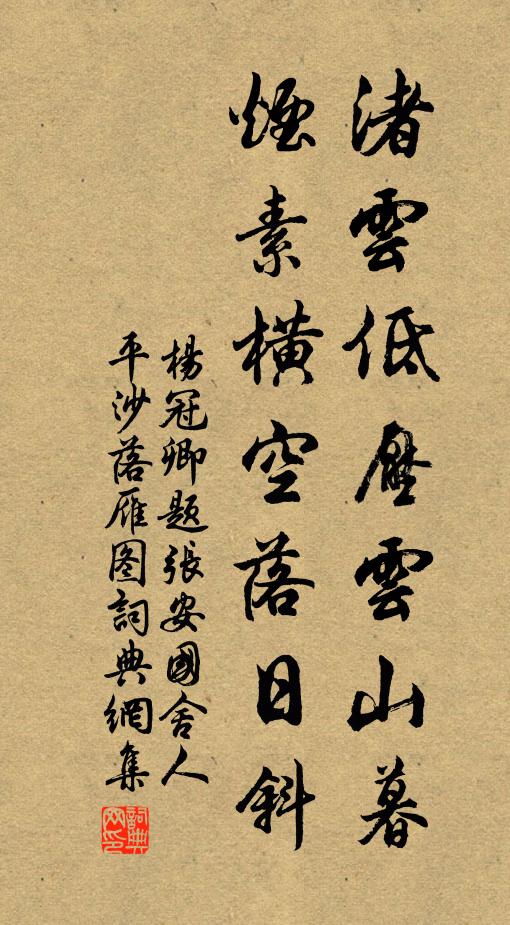 渚雲低壓雲山暮
煙素橫空落日斜
楊冠卿題張安國舍人
平沙落雁图詞典網集
詞典网印